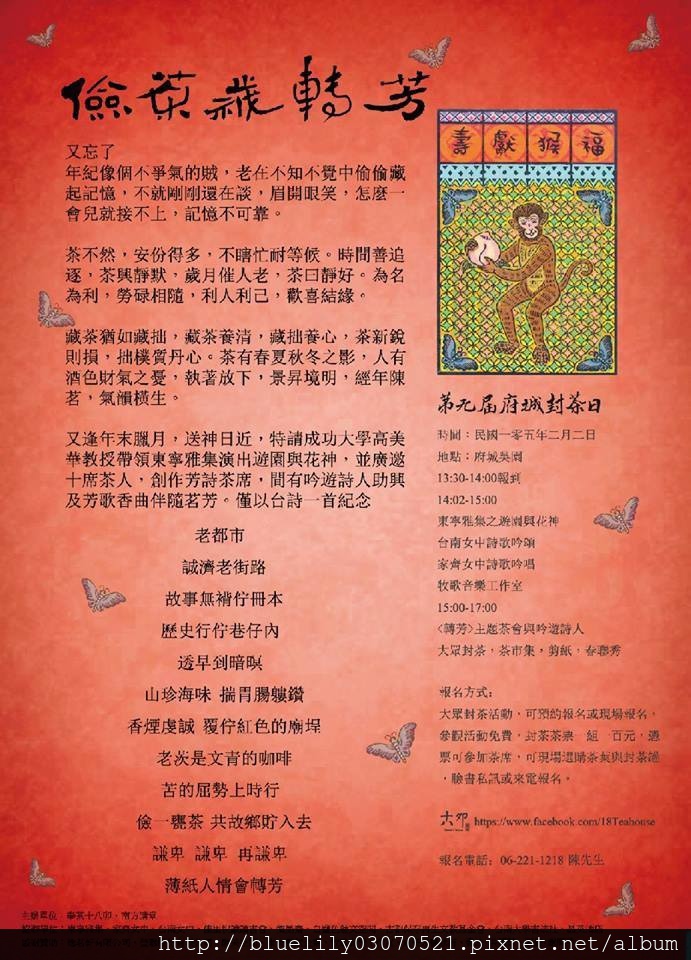 儉茶歲轉芳
又忘了
年紀像個不爭氣的賊，老在不知不覺中偷偷藏
起記憶，不就剛剛還在談，眉開眼笑，怎麼一
會兒就接不上，記憶不可靠。
茶不然，安份得多，不瞎忙耐等候。時間善追
逐，茶興靜默，歲月催人老，茶曰靜好。為名
為利，勞碌相隨，利人利己，歡喜結緣。
藏茶猶如藏拙，藏茶養清，藏拙養心，茶新銳
則損，拙樸質丹心。茶有春夏秋冬之影，人有
酒色財氣之憂，執著放下，景昇境明，經年陳
茗，氣韻橫生。
又逢年末臘月，送神日近，特請成功大學高美
華教授帶領東寧雅集演出遊園與花神，並廣邀
十席茶人，創作芳詩茶席，間有吟遊詩人助興
及芳歌香曲伴隨茗芳。僅以台詩一首紀念
老都市
誠濟老街路
故事無褙佇冊本
歷史行佇巷仔內
透早到暗暝
山珍海味 揣胃腸軁鑽
香煙虔誠 覆佇紅色的廟埕
老茨是文青的咖啡
苦的屈勢上時行
儉一甕茶 共故鄉貯入去
謙卑 謙卑 再謙卑
薄紙人情會轉芳
壽 獻 猴 福
第九屆府城封茶日
時間：民國一零五年二月二日
地點：府城吳園
13:30-14:00報到
14:02-15:00
東寧雅集之遊園與花神
台南女中詩歌吟頌
家齊女中詩歌吟唱
牧歌音樂工作室
15:00-17:00
<轉芳>主題茶會與吟遊詩人
大眾封茶，茶市集，剪紙，春聯秀
報名方式：
大眾封茶活動，可預約報名或現場報名，
參觀活動免費，封茶茶票一組一百元，憑
票可參加茶席，可現場選購茶葉與封茶罐
，臉書私訊或來電報名。
十八卯 https://www.facebook.com/18Teahouse
報名電話：06-221-1218 陳先生
主辦單位：奉茶十八卯、南方講堂
http://bluelily03070521.pixnet.net/album